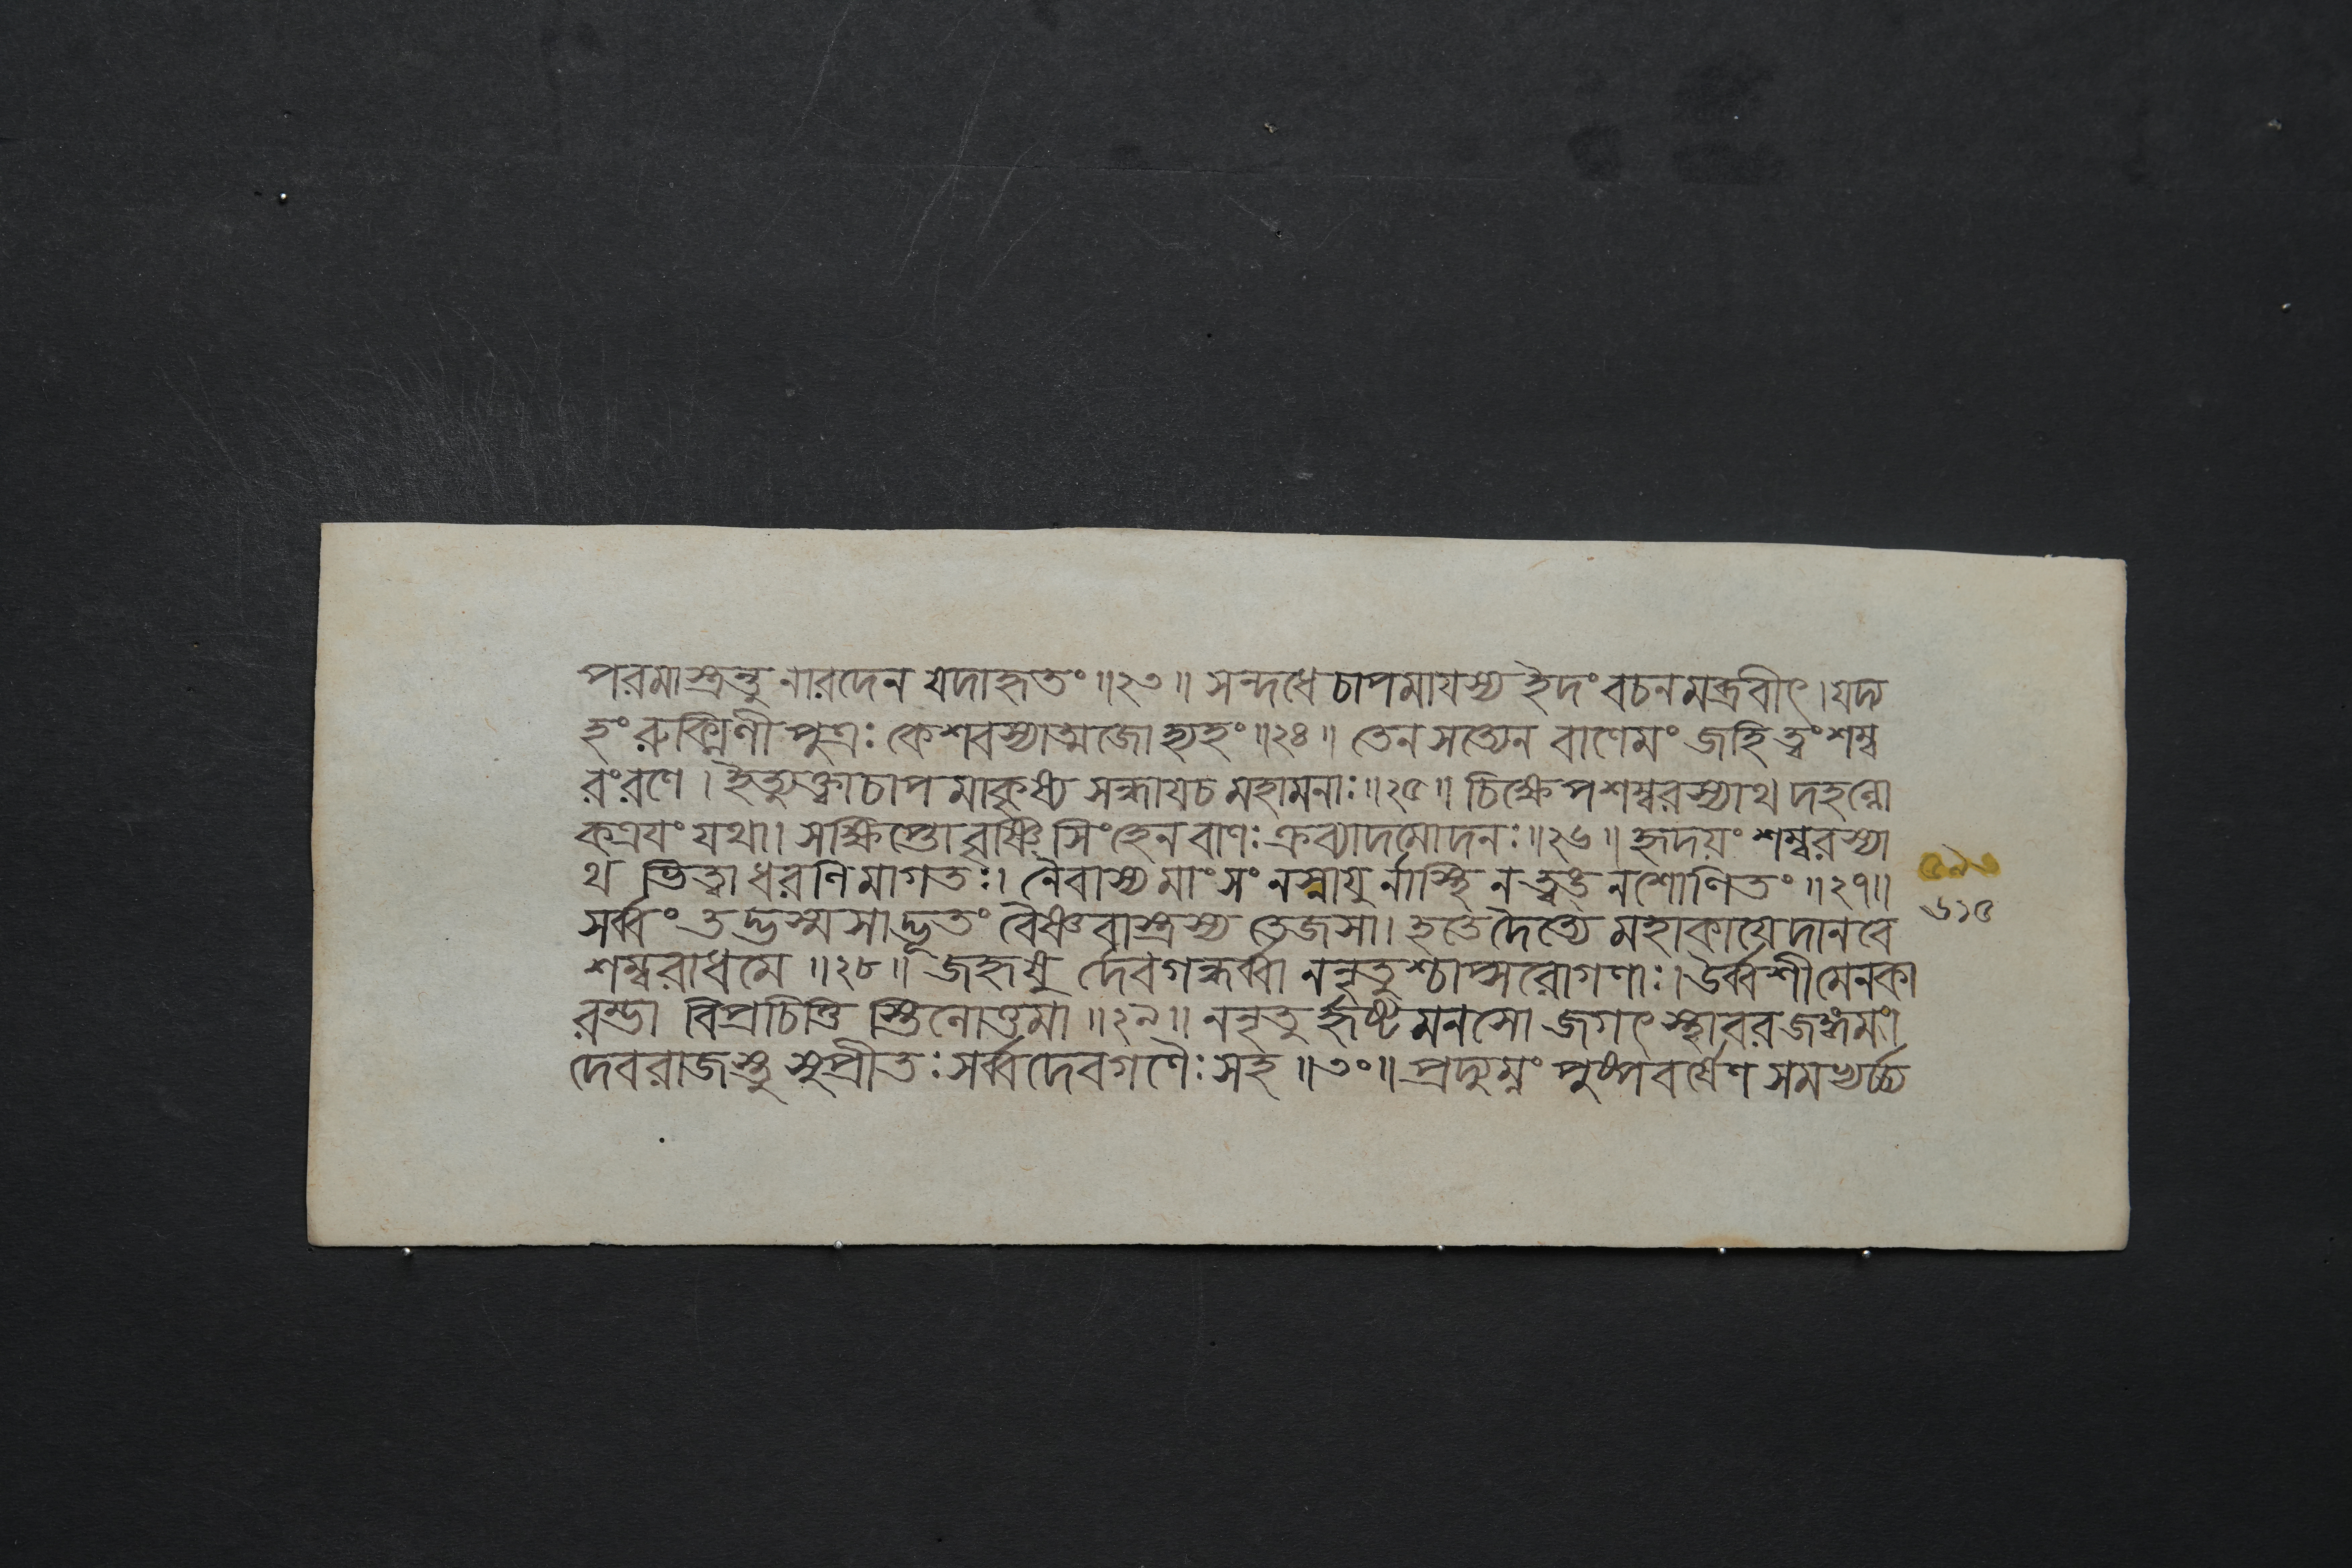 পরমাস্ত্রন্তু নারদেন যদাহৃতং ॥২৩॥ সন্দধে চাপমাযস্য ইদং বচনমব্রবীৎ । যদ্য
হং রুক্মিণীপুত্রঃ কেশবস্যাত্মজো হ্যহং ॥২৪॥ তেন সত্যেন বাণেমং জহি ত্বং শম্ব
রং রণে । ইত্যুক্ত্বা চাপমাকৃষ্য সন্ধায চ মহামনাঃ ॥২৫॥ চিক্ষেপ শম্বরস্যাথ দহন্লো
কত্রযং যথা । সক্ষিপ্তো বৃষ্ণিসিংহেন বাণঃ ক্রব্যাদমোদনঃ ॥২৬॥ হৃদয়ং শম্বরস্যা
থ ভিত্বা ধরণিমাগতঃ । নৈবাস্য মাংসং ন স্নাযু র্নাস্থি ন ত্বঙ্ ন শোণিতং ॥২৭॥
সর্ব্বং তদ্ভস্মসাদ্ভূতং বৈষ্ণবাস্ত্রস্য তেজসা । হতে দৈত্যে মহাকাযে দানবে
শম্বরাধমে ॥২৮॥ জহৃষু র্দেবগন্ধর্ব্বা ননৃতুশ্চাপ্সরোগণাঃ । উর্ব্বশী মেনকা
রম্ভা বিপ্রচিত্তি স্তিলোত্তমা ॥২৯॥ ননৃতু র্হৃষ্টমনসো জগৎ স্থাবরজঙ্গমং ।
দেবরাজস্তু সুপ্রীতঃ সর্ব্বদেবগণৈঃ সহ ॥৩০॥ প্রদ্যুম্নং পুষ্পবর্ষেণ সমভ্যর্চ্চ্য
৬১৫